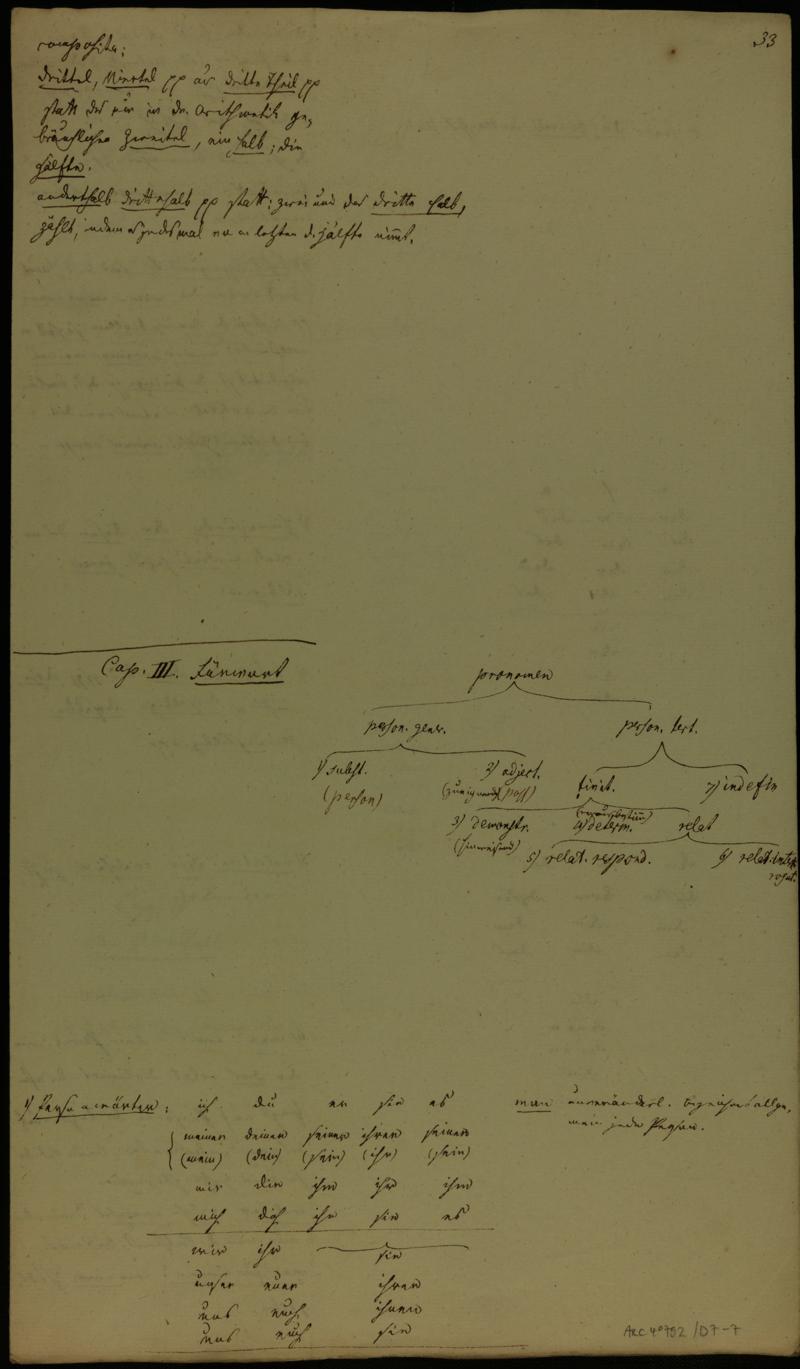 33
composita:
drittel, Viertel pp aus dritte Theil pp
statt des nur in der Arithmetik ge-
bräuchlichen Zweitel, ein halb; die
Hälfte.
anderthalb drittehalb pp statt: zwei und das dritte halb,
zählt, indem es jedesmal vom letzten d. Hälfte nimt.
Cap. III. Fürwort
pronomen
person. gener.
person. tert.
1) subst.
2) adject.
finit.
7) indefin
(person)
(zueignend poss)
3) demonstr.
4) determ.
relat
(hinweisend)
5) relat. respond.
6) relat. inter
rogat.
1) Personwörter: ich du er sie es
man unveränderl. bezeichnet allge-
mein jede Person.
meiner deiner seiner ihrer seiner
(mein) (dein) (sein) (ihr) (sein)
mir dir ihm ihr ihm
mich dich ihn sie es
wir ihr sie
unser euer ihrer
uns euch ihnen
uns euch sie
ARC 4° 792 / D7-7